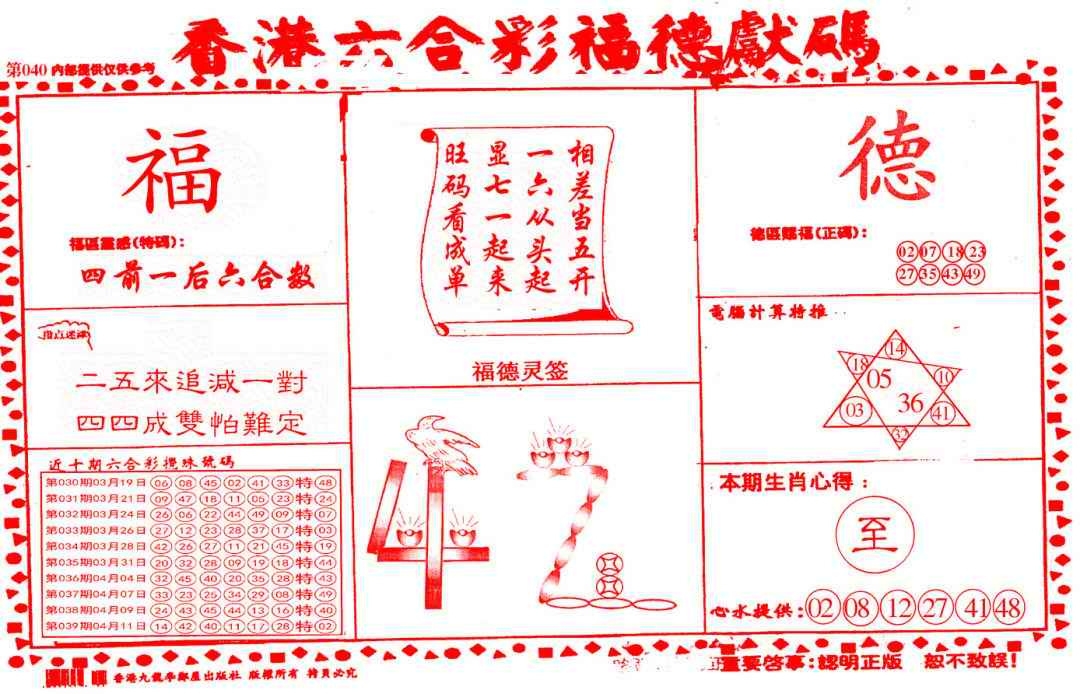 香港六合彩福德獻碼
第040 內部提供仅供参考
福
福區靈感(特碼):
四前一后六合数
指点迷津
二五來追減一對
四四成雙怕難定
近十期六合彩攪珠號碼
第030期03月19日 06 08 45 02 41 33 特 48
第031期03月21日 09 47 18 11 05 23 特 24
第032期03月24日 26 06 22 44 49 09 特 07
第033期03月26日 27 12 23 28 37 17 特 03
第034期03月28日 42 26 27 11 21 45 特 19
第035期03月31日 20 32 28 09 19 18 特 44
第036期04月04日 32 45 40 20 35 28 特 43
第037期04月07日 33 23 25 34 29 08 特 49
第038期04月09日 24 43 45 44 13 16 特 40
第039期04月11日 14 42 40 11 17 28 特 02
相差当五开
一六从头起
显七一起来
旺码看成单
福德灵签
42
德
德區賜福(正碼):
02 07 18 23
27 35 43 49
電腦計算特推
14
18 10
05
36
03 41
32
本期生肖心得:
至
心水提供: 02 08 12 27 41 48
香港九龍 出版社 版權所有 翻頁必究
重要啓事:認明正版 恕不致誤!